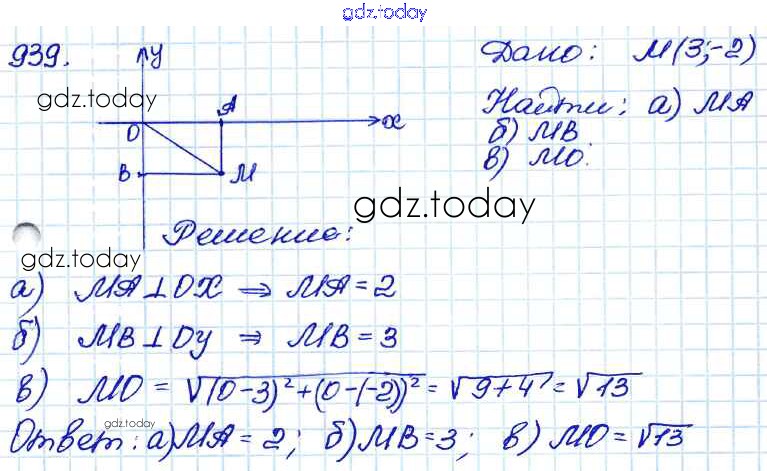 gdz.today
939.
y
Дано: M(3;-2)
gdz.today
A
Найти: а) MA
O
x
б) MB
в) MO.
B
M
gdz.today
Решение:
gdz.today
а) MA⊥OX ⇒ MA = 2
б) MB⊥Oy ⇒ MB = 3
в) MO = √((0-3)²+(0-(-2))²) = √(9+4) = √13
gdz.today
Ответ: а) MA = 2; б) MB = 3; в) MO = √13